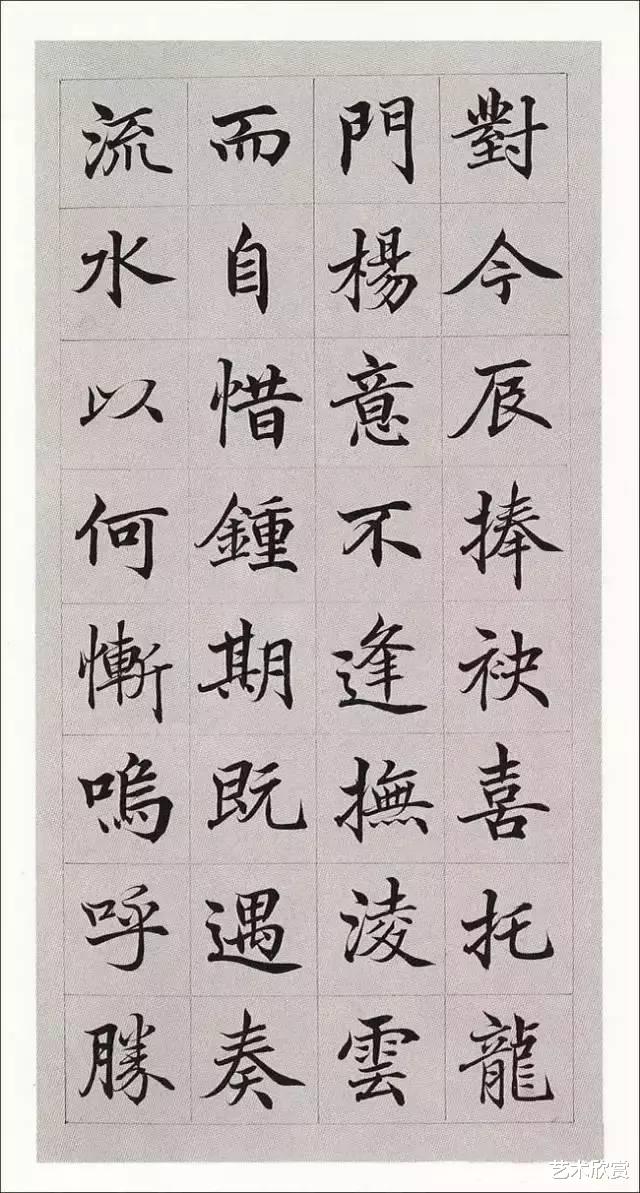 對今辰捧袂喜托龍
門楊意不逢撫淩雲
而自惜鍾期既遇奏
流水以何慚嗚呼勝
艺术欣赏